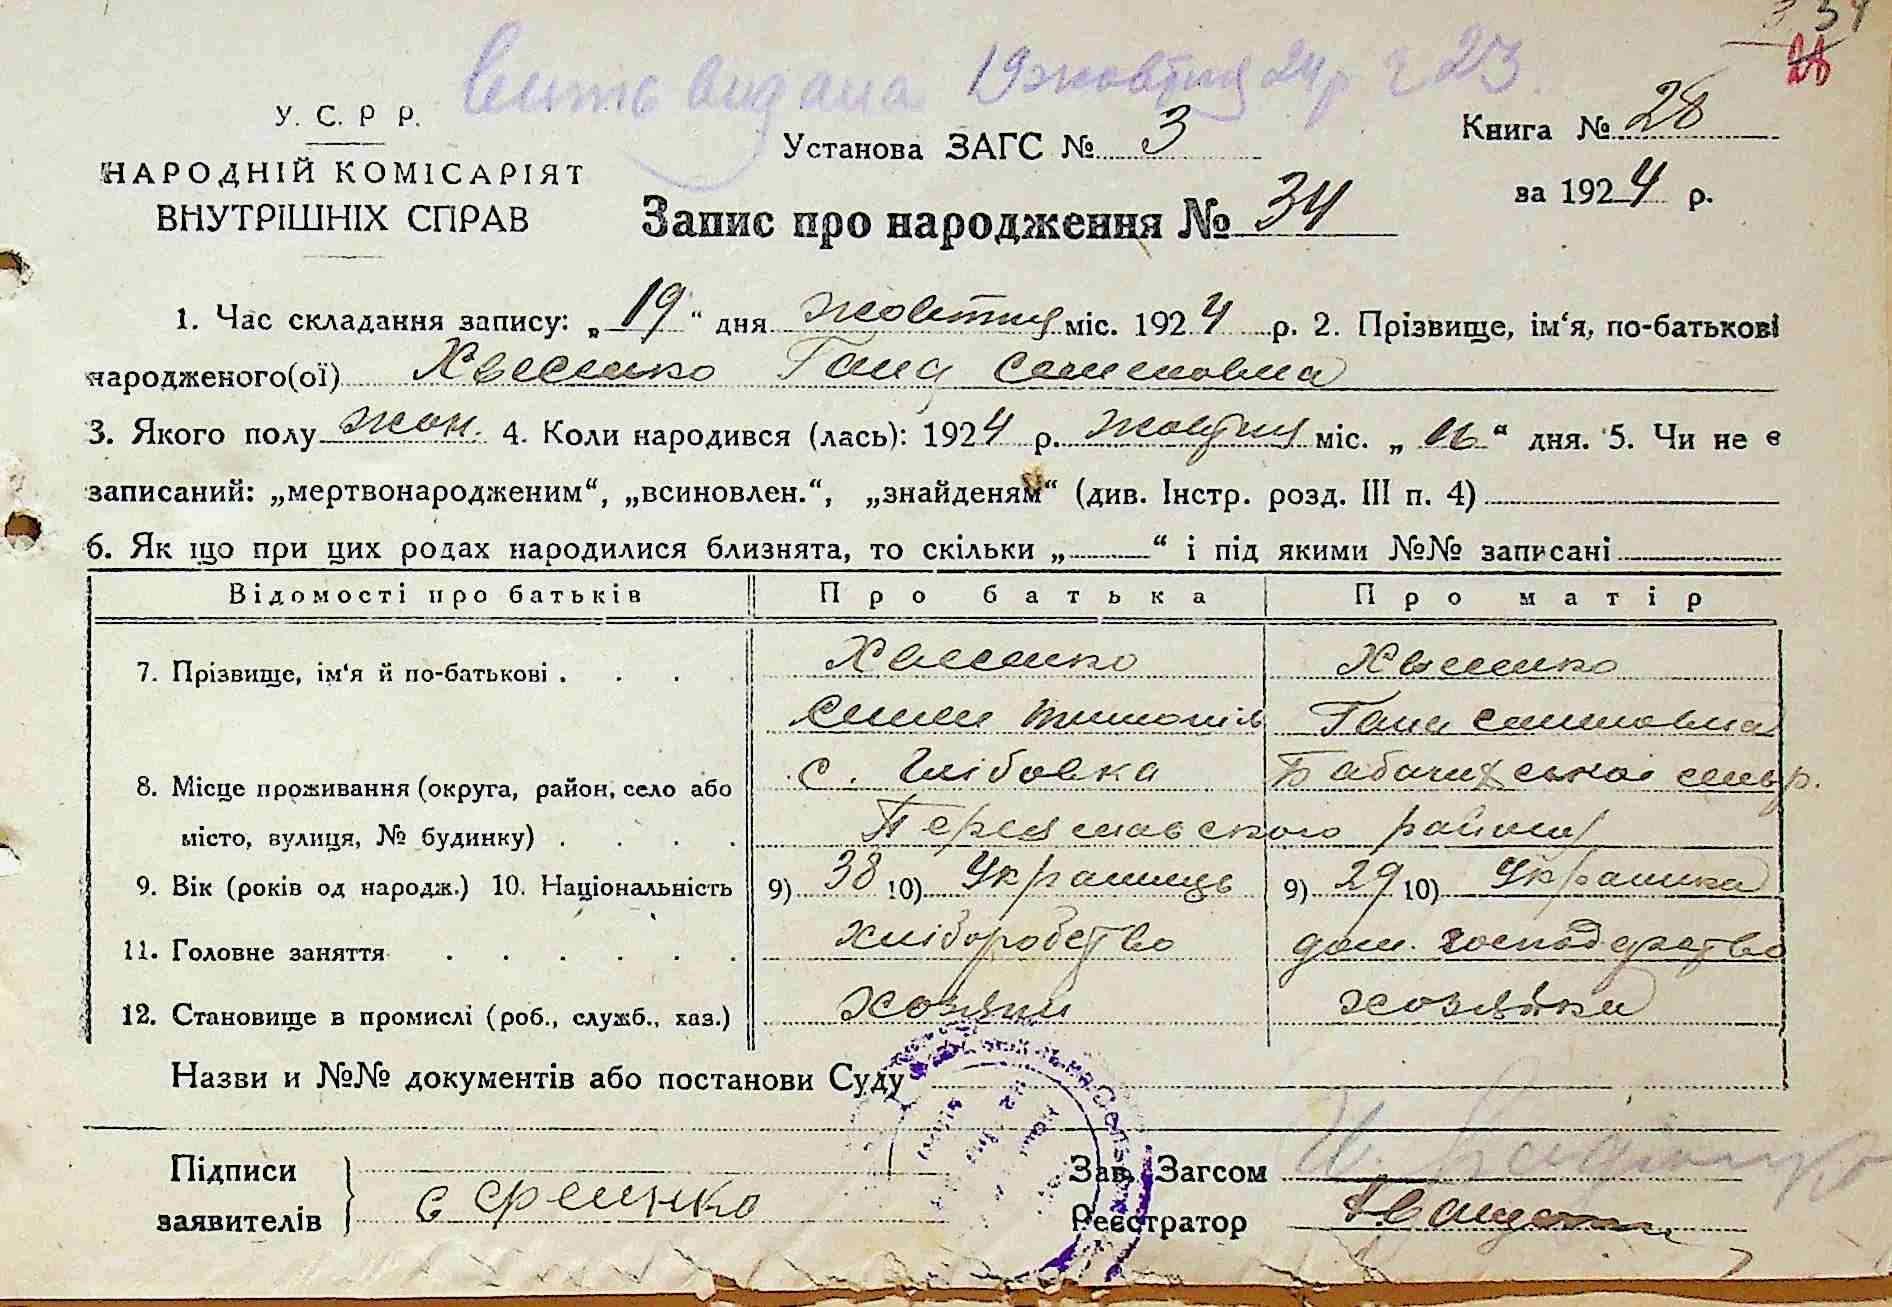 334
28
видана 19 жовтня 24 р ч 23.
У. С. Р Р.
НАРОДНІЙ КОМІСАРІЯТ
ВНУТРІШНІХ СПРАВ
Установа ЗАГС № 3
Книга № 28
за 1924 р.
Запис про народження № 34
1. Час складання запису: „19“ дня жовтня міс. 1924 р. 2. Прізвище, ім‘я, по-батькові
народженого(ої) Хвесенко Гана Семеновна
3. Якого полу жон. 4. Коли народився (лась): 1924 р. жовтня міс. „16“ дня. 5. Чи не є
записаний: „мертвонародженим“, „всиновлен.“, „знайденям“ (див. Інстр. розд. III п. 4)
6. Як що при цих родах народилися близнята, то скільки „ “ і під якими №№ записані
Відомості про батьків Про батька Про матір
7. Прізвище, ім‘я й по-батькові . . . . Хвесенко Хвесенко
Семен Тимопів Гана Семеновна
с. Глібовка Бабачихської сельр.
8. Місце проживання (округа, район, село або
місто, вулиця, № будинку) . . . . Переяславского району
9. Вік (років од народж.) 10. Національність 9) 38 10) Украинець 9) 29 10) Украинка
11. Головне заняття . . . . . . хліборобство дом. господарство
12. Становище в промислі (роб., служб., хаз.) хозяин хозяйка
Назви и №№ документів або постанови Суду
Підписи
заявителів Єфременко
Зав. Загсом
Реєстратор